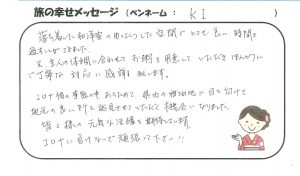 旅の幸せメッセージ（ペンネーム： KI ）
落ち着いた和洋室のゆったりした空間でとても良い時間を
過すことができました。
又、主人の体調に合わせてお粥を用意していただきほんとうに
ご丁寧な対応に感謝致します。
コロナ禍の事態の中、あらためて県内の宿泊地に目を向けて
地元の良い所を発見させていただく機会になりました。
皆々様の元気な活躍を期待しています。
コロナに負けないで頑張って下さい